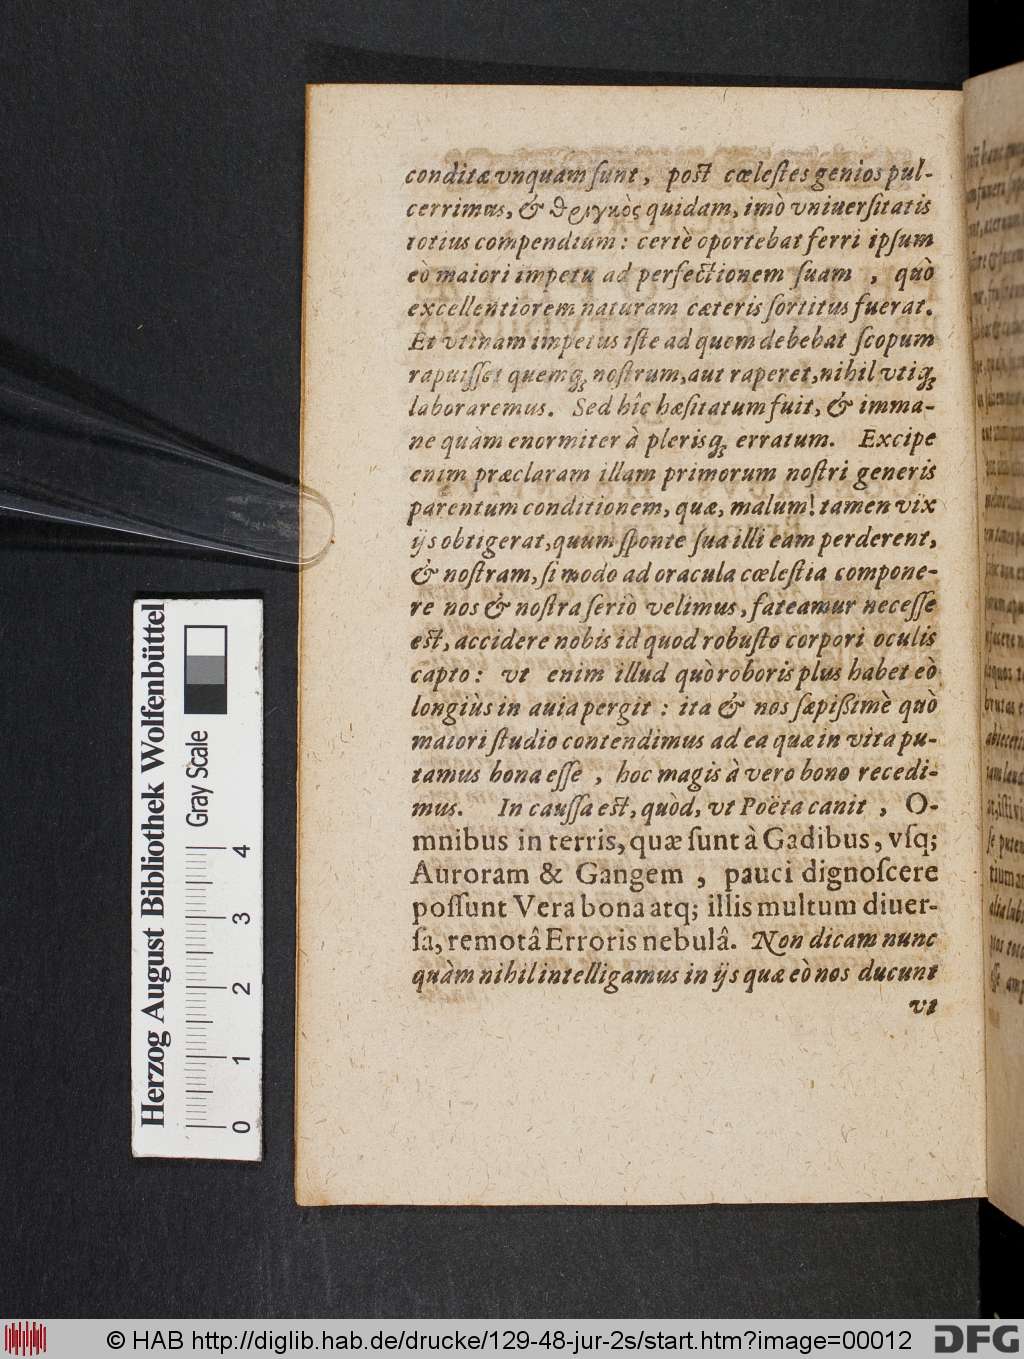 conditæ vnquam ſunt, poſt cœleſtes genios pul-
cerrimus, & θριγκὸς quidam, imò vniuerſitatis
totius compendium: certè oportebat ferri ipſum
eò maiori impetu ad perfectionem ſuam, quò
excellentiorem naturam cæteris ſortitus fuerat.
Et vtinam impetus iſte ad quem debebat ſcopum
rapuiſſet quemq; noſtrum, aut raperet, nihil vtiq;
laboraremus. Sed hîc hæſitatum fuit, & imma-
ne quàm enormiter à plerisq; erratum. Excipe
enim præclaram illam primorum noſtri generis
parentum conditionem, quæ, malum! tamen vix
ijs obtigerat, quum ſponte ſua illi eam perderent,
& noſtram, ſi modo ad oracula cœleſtia compone-
re nos & noſtra ſeriò velimus, fateamur neceſſe
eſt, accidere nobis id quod robuſto corpori oculis
capto: vt enim illud quò roboris plus habet eò
longiùs in auia pergit: ita & nos ſæpißimè quò
maiori ſtudio contendimus ad ea quæ in vita pu-
tamus bona eſſe, hoc magis à vero bono recedi-
mus. In cauſſa eſt, quòd, vt Poëta canit, O-
mnibus in terris, quæ ſunt à Gadibus, vſq;
Auroram & Gangem, pauci dignoſcere
poſſunt Vera bona atq; illis multum diuer-
ſa, remotâ Erroris nebulâ. Non dicam nunc
quàm nihil intelligamus in ijs quæ eò nos ducunt
vt
Herzog August Bibliothek Wolfenbüttel
Gray Scale
0 1 2 3 4
© HAB http://diglib.hab.de/drucke/129-48-jur-2s/start.htm?image=00012
DFG